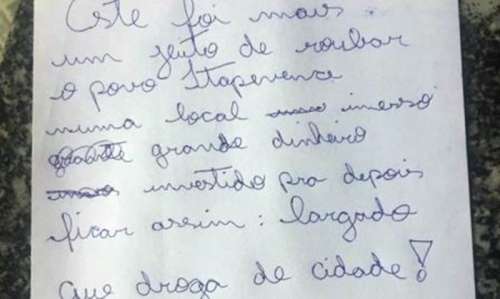 Este foi mais
um jeito de roubar
o povo Itapevence
numa local imerso
grande dinheiro
investido pra depois
ficar assim: largado
que droga de cidade!